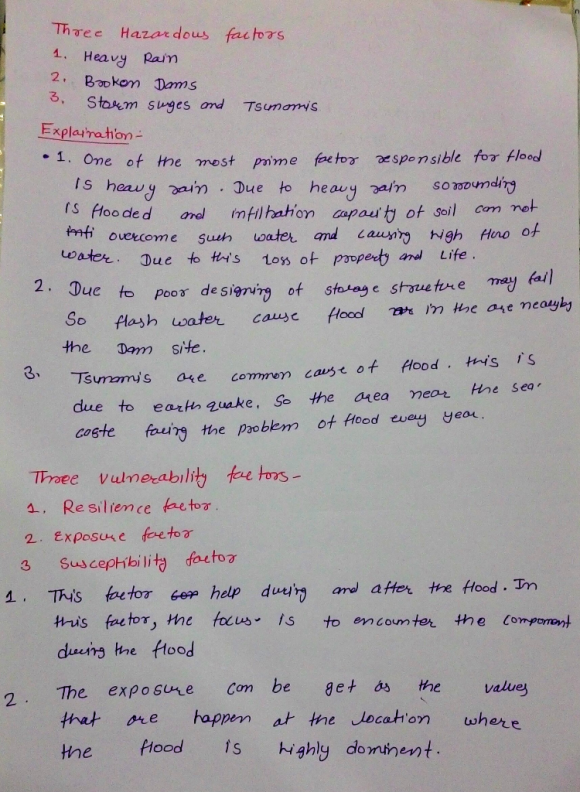 Three Hazardous factors
1. Heavy Rain
2. Broken Dams
3. Storm surges and Tsunamis
Explaination -
• 1. One of the most prime factor responsible for flood
is heavy rain. Due to heavy rain sorrounding
is flooded and infiltration capacity of soil can not
overcome such water and causing high flow of
water. Due to this loss of property and Life.
2. Due to poor designing of storage structure may fail
So flash water cause flood in the are nearby
the Dam site.
3. Tsunamis are common cause of flood. this is
due to earth quake. So the area near the sea
coste facing the problem of flood every year.
Three vulnerability factors -
1. Resilience factor.
2. Exposure factor
3 Susceptibility factor
1. This factor help during and after the flood. In
this factor, the focus is to encounter the component
during the flood
2. The exposure can be get as the values
that are happen at the location where
the flood is highly dominent.